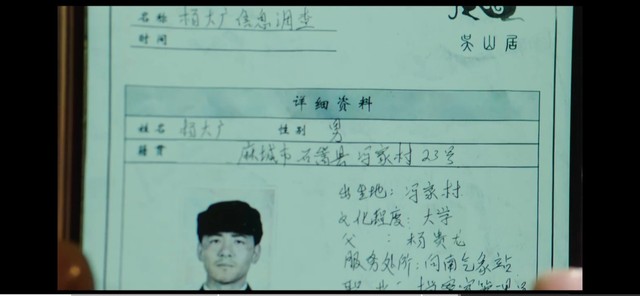 名称 杨大广信息调查
时间
吴山居
详细资料
姓名 杨大广 性别 男
籍贯 麻城市石嵩县冯家村23号
出生地：冯家村
文化程度：大学
父：杨贵龙
服务处所：向南气象站